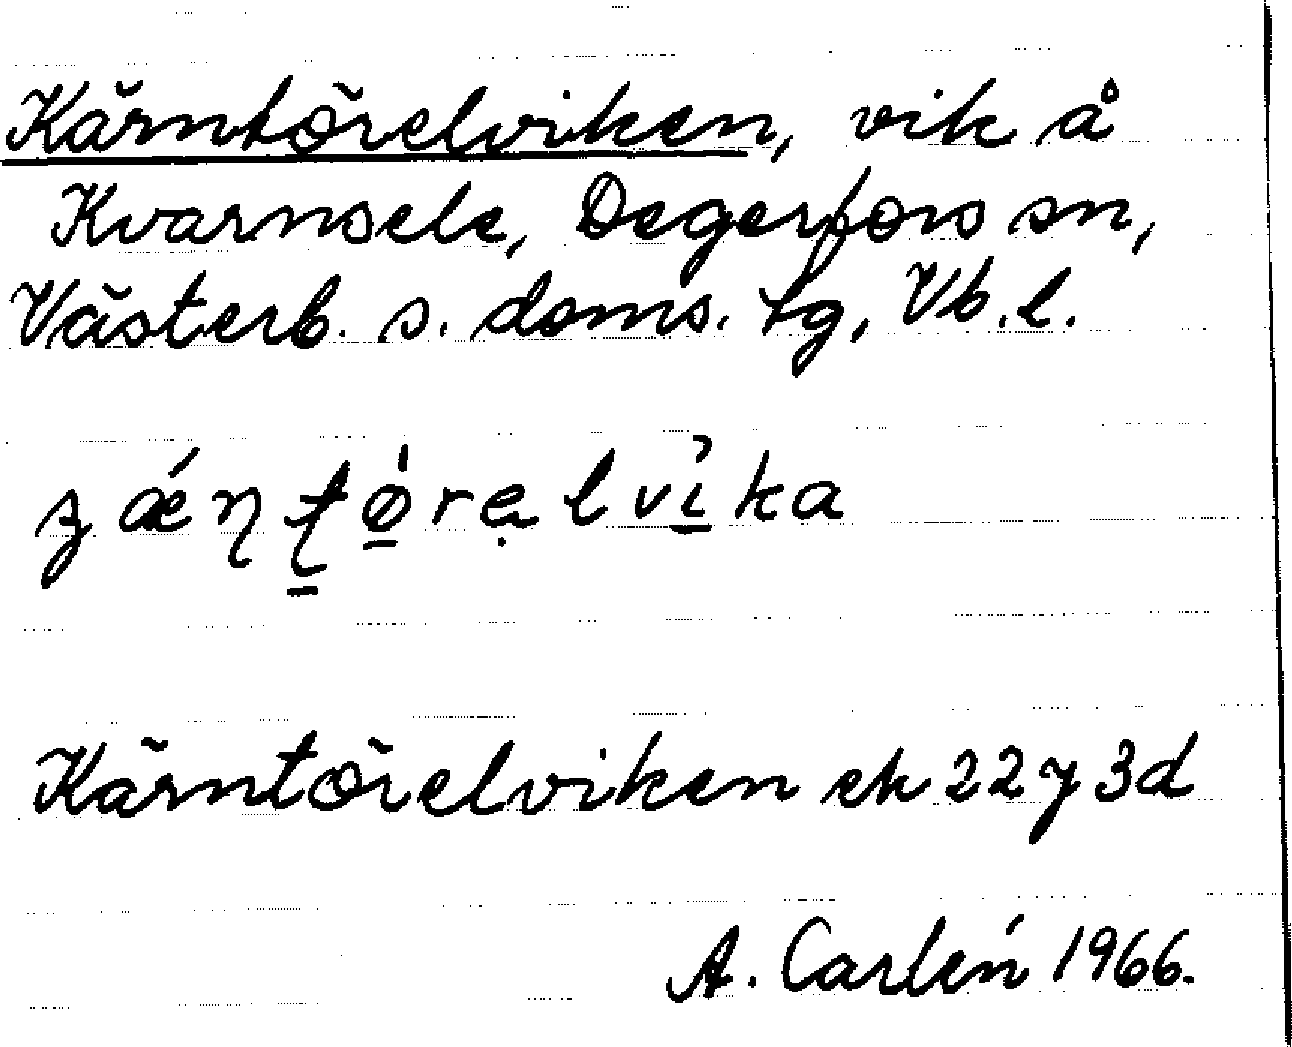 Kärntörelviken, vik å
Kvarnsele, Degerfors sn,
Västerb. s. doms. tg, Vb. l.
Kärntörelviken ek 22 y 3d
A. Carlén 1966.